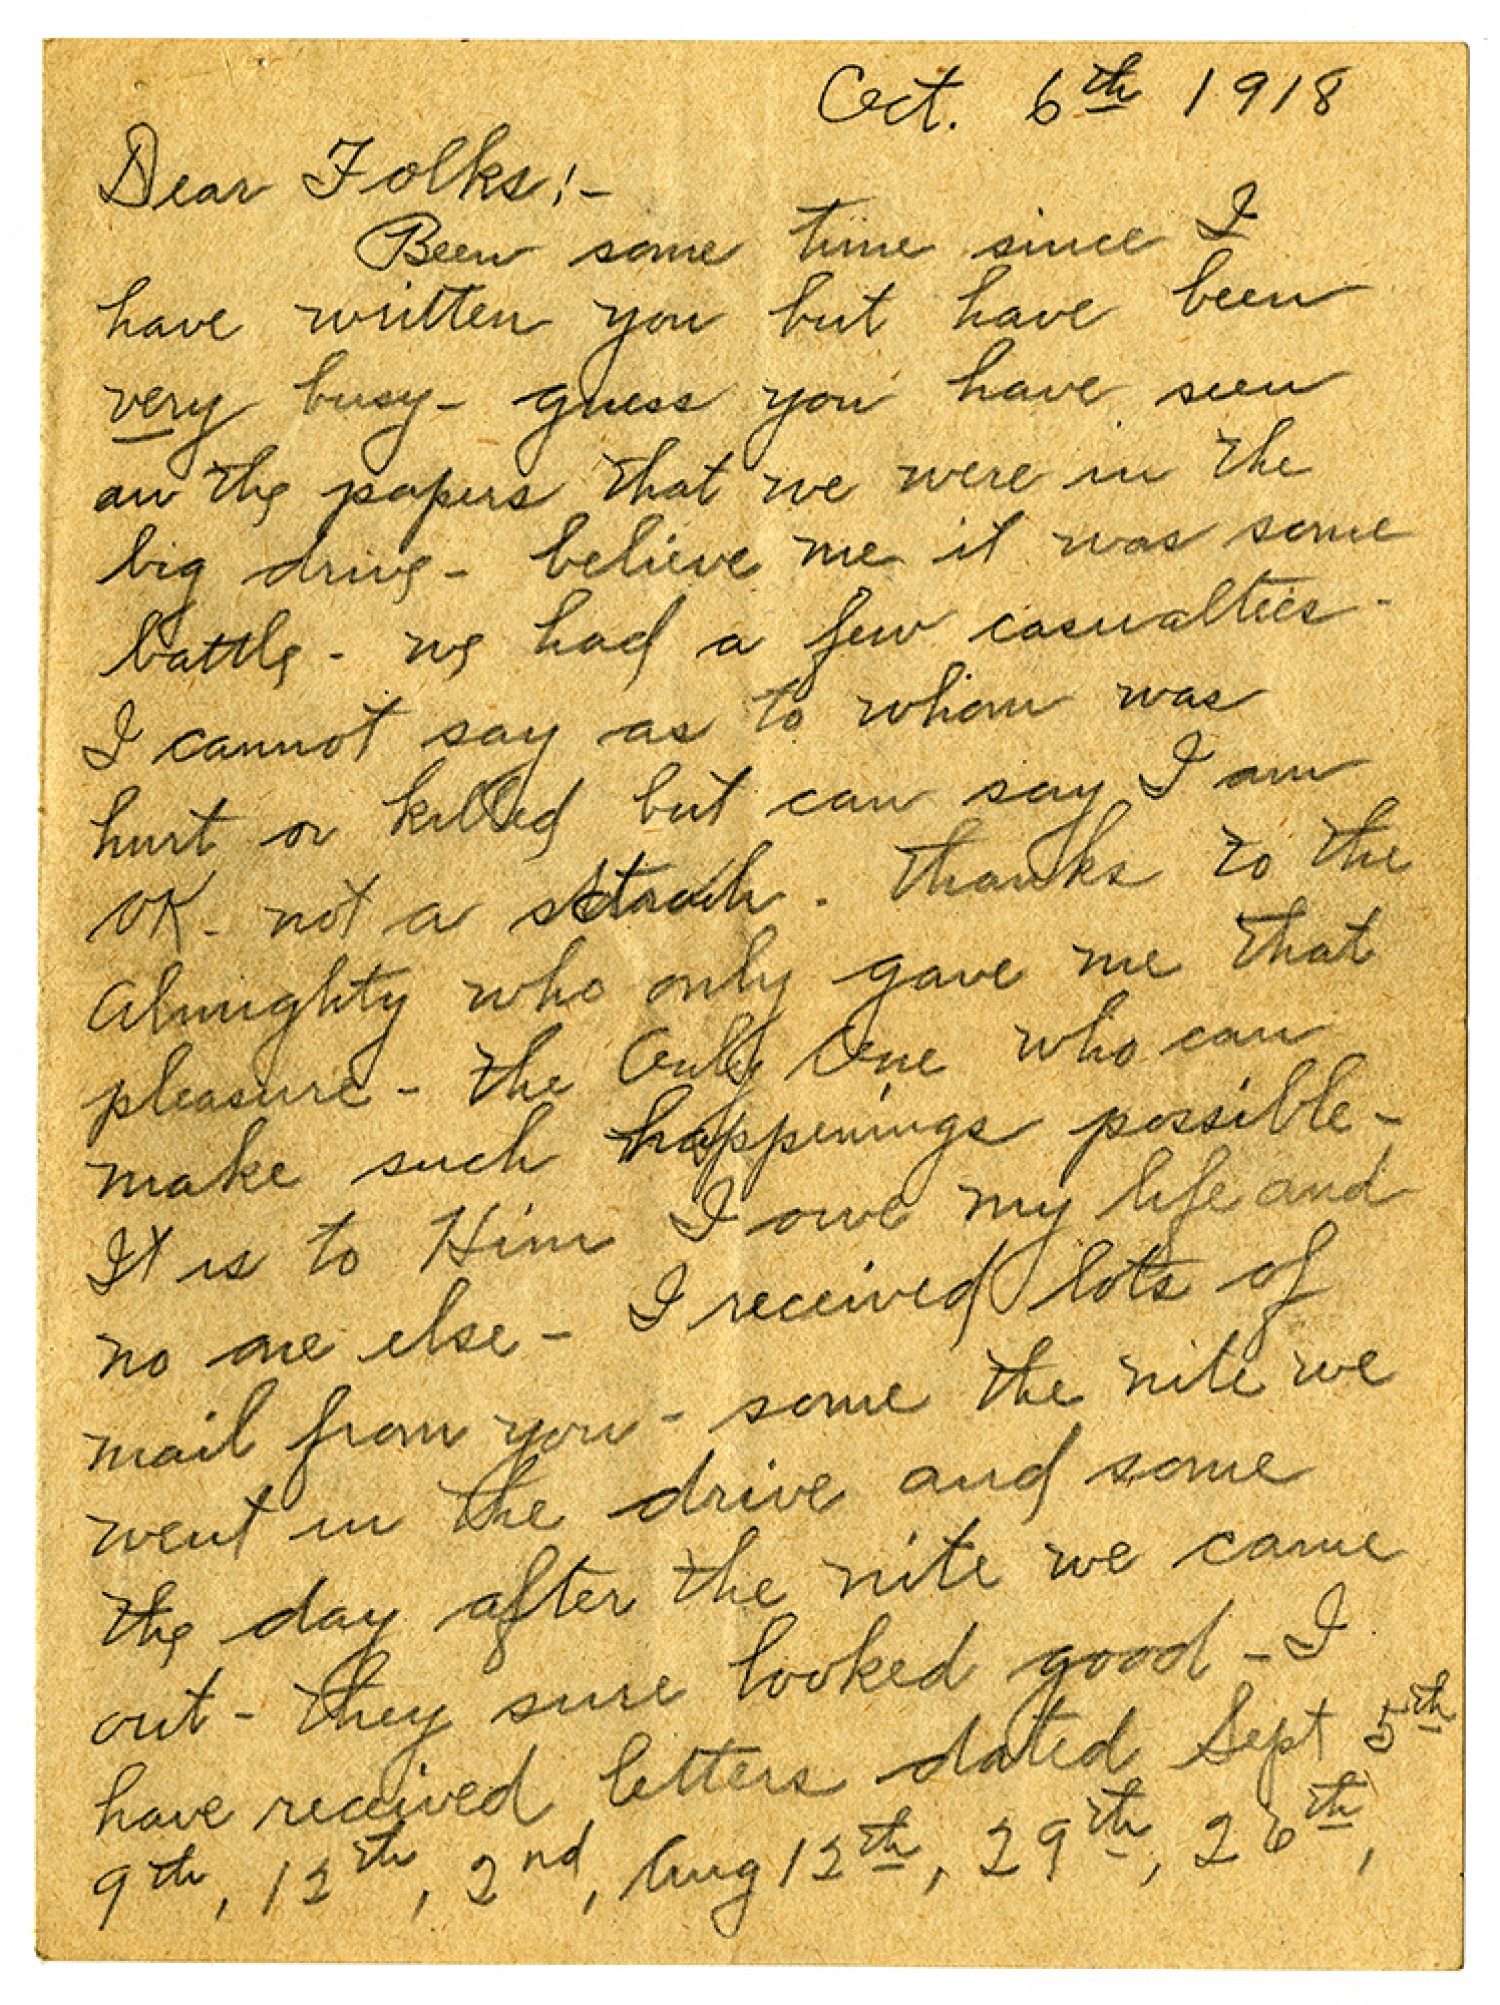 Oct. 6th 1918
Dear Folks:-
Been some time since I
have written you but have been
very busy- guess you have seen
in the papers that we were in the
big drive- believe me it was some
battle- we had a few casualties-
I cannot say as to whom was
hurt or killed but can say I am
OK- not a . Thanks to the
Almighty who only gave me that
pleasure- the Only One who can
make such happenings possible-
It is to Him I owe my life and
no one else- I received lots of
mail from you- some the nite we
went in the drive and some
the day after the nite we came
out- they sure looked good- I
have received letters dated Sept 5th
9th, 12th, 2nd, Aug 12th, 29th, 26th,